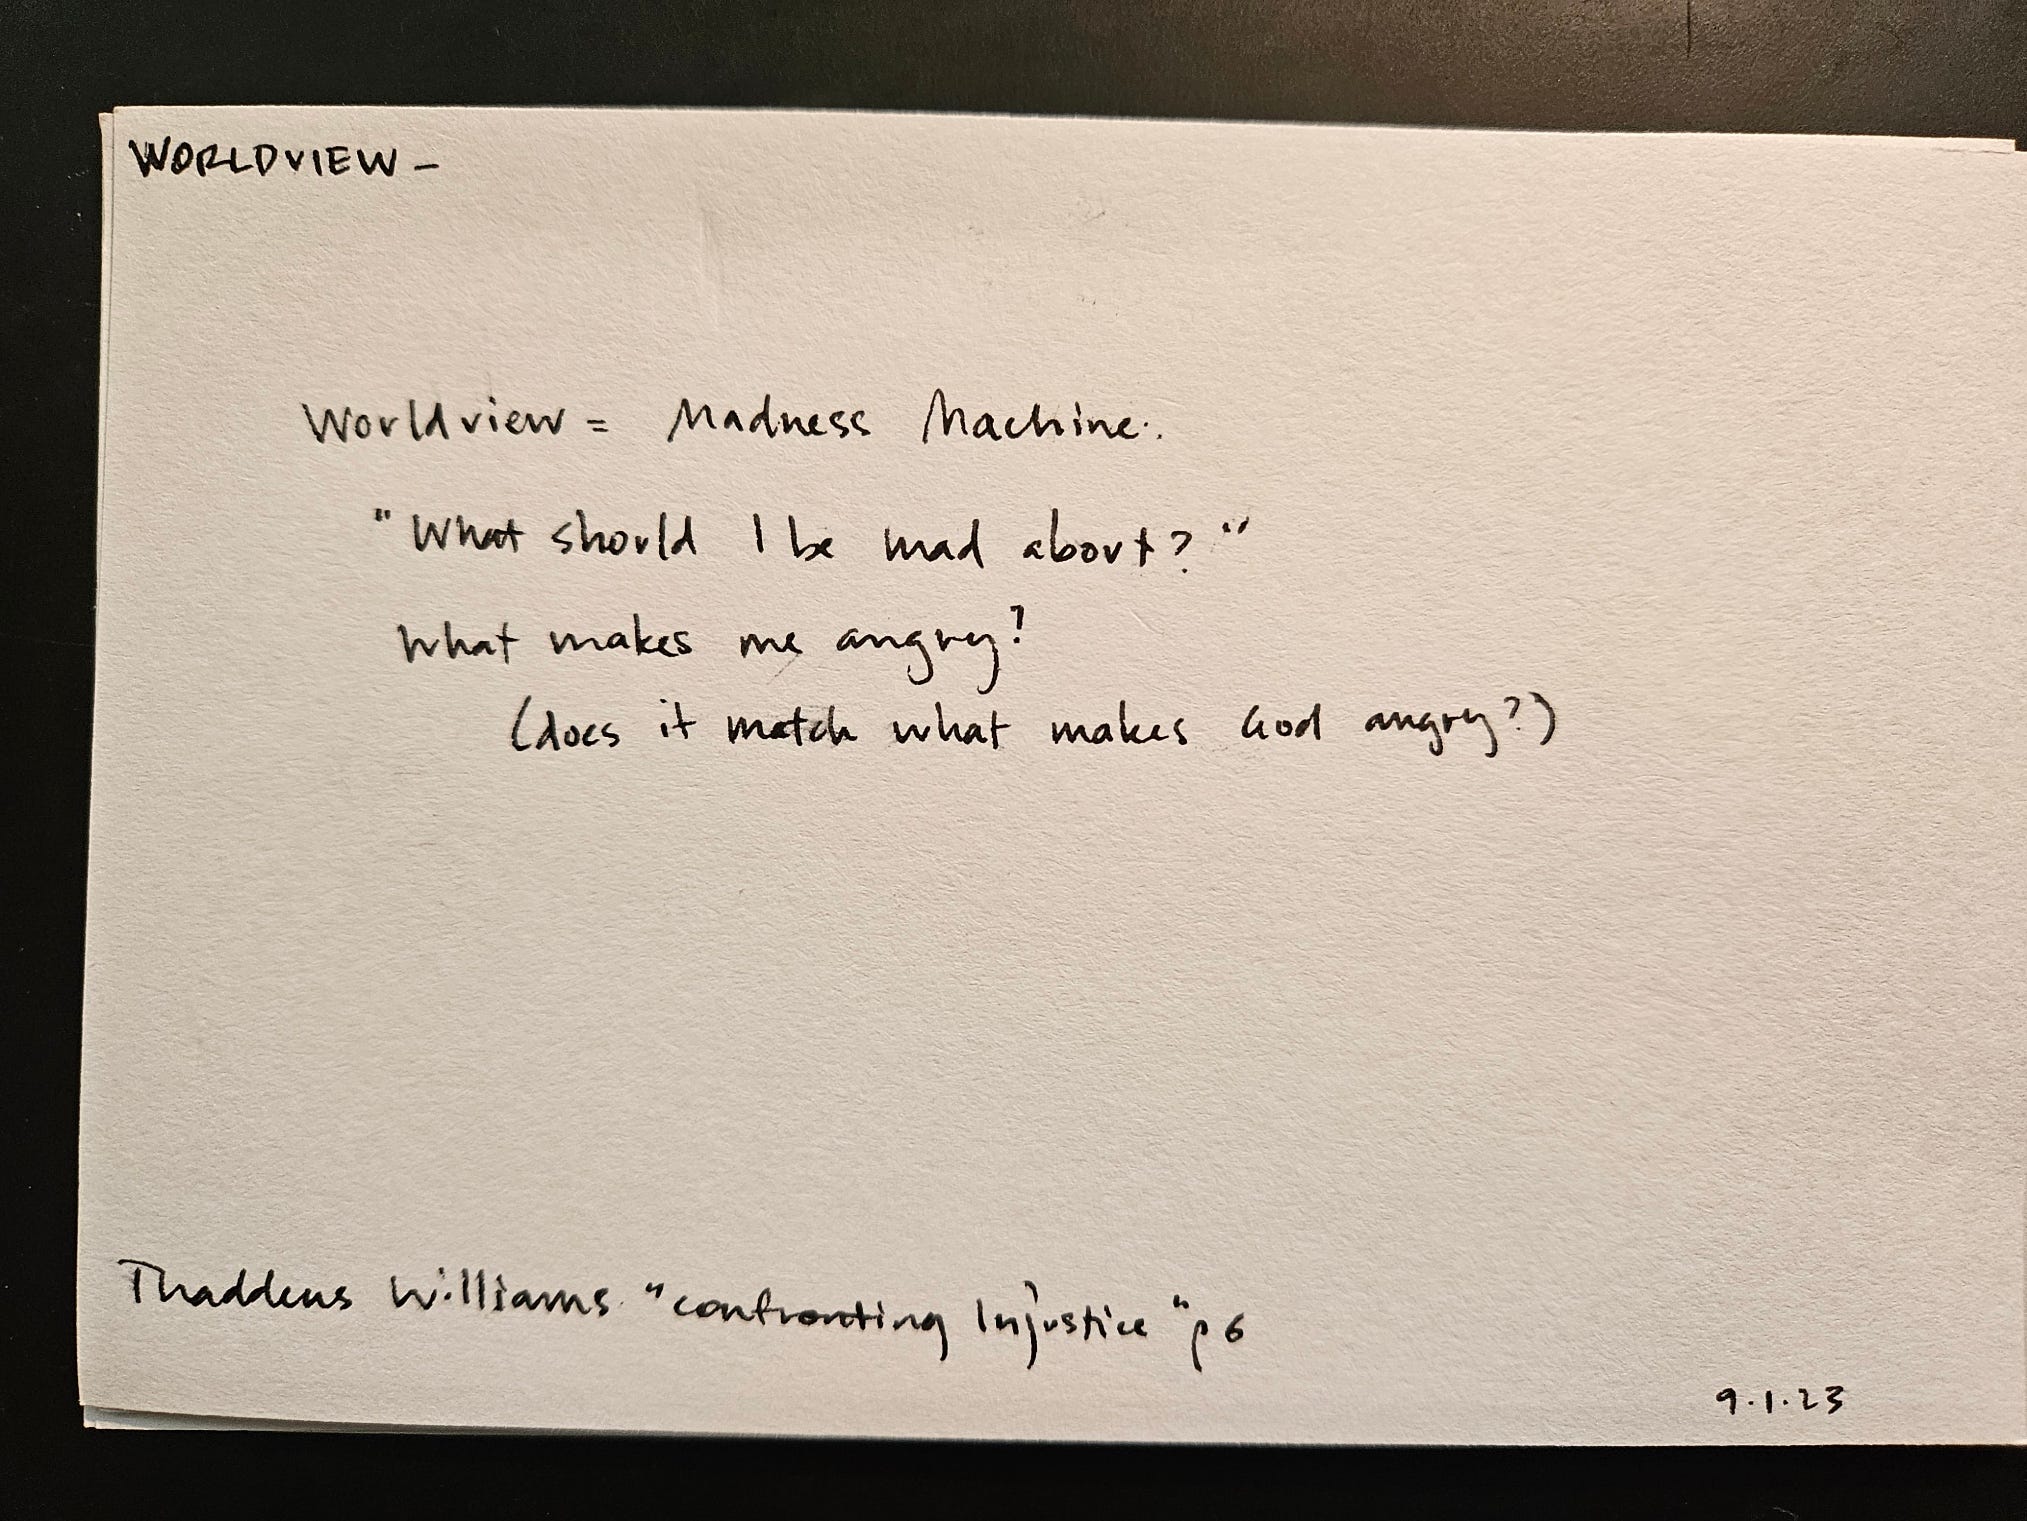 WORLDVIEW –
Worldview = Madness Machine.
"What should I be mad about?"
What makes me angry?
(does it match what makes God angry?)
Thaddeus Williams "confronting Injustice" p 6
9.1.23